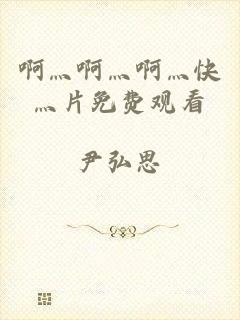 啊灬啊灬啊灬快
灬片免费观看
尹弘思